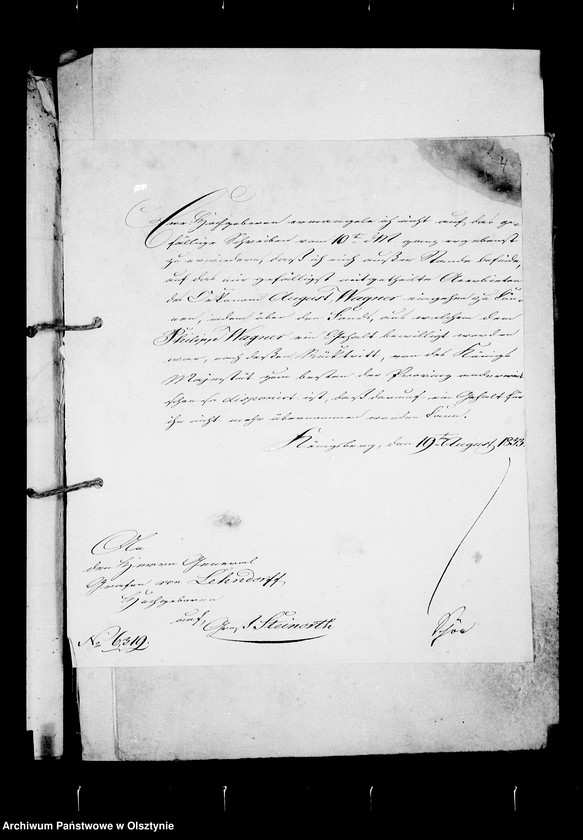 4
Eure Hochgeboren ermangele ich nicht auf das ge-
fällige Schreiben vom 10t. d M ganz ergebenst
zu erwiedern, daß ich mich außer Stande befinde,
auf das mir gefälligst mitgetheilte Anerbieten
des August Wagner eingehen zu kön-
nen, indem über den Fonds, aus welchem dem
Philipp Wagner ein Gehalt bewilligt worden
war, nach deßen Rücktritt, von des Königs
Majestät zum besten der Provinz anderwei-
so disponirt ist, daß darauf ein Gehalt für
ihn nicht mehr übernommen werden kann.
Königsberg, den 19t. August 1833.
An
den Herrn General
Grafen von Lehndorff
Hochgeboren
auf Gros Steinorth
No 6319.
Schön
Archiwum Państwowe w Olsztynie